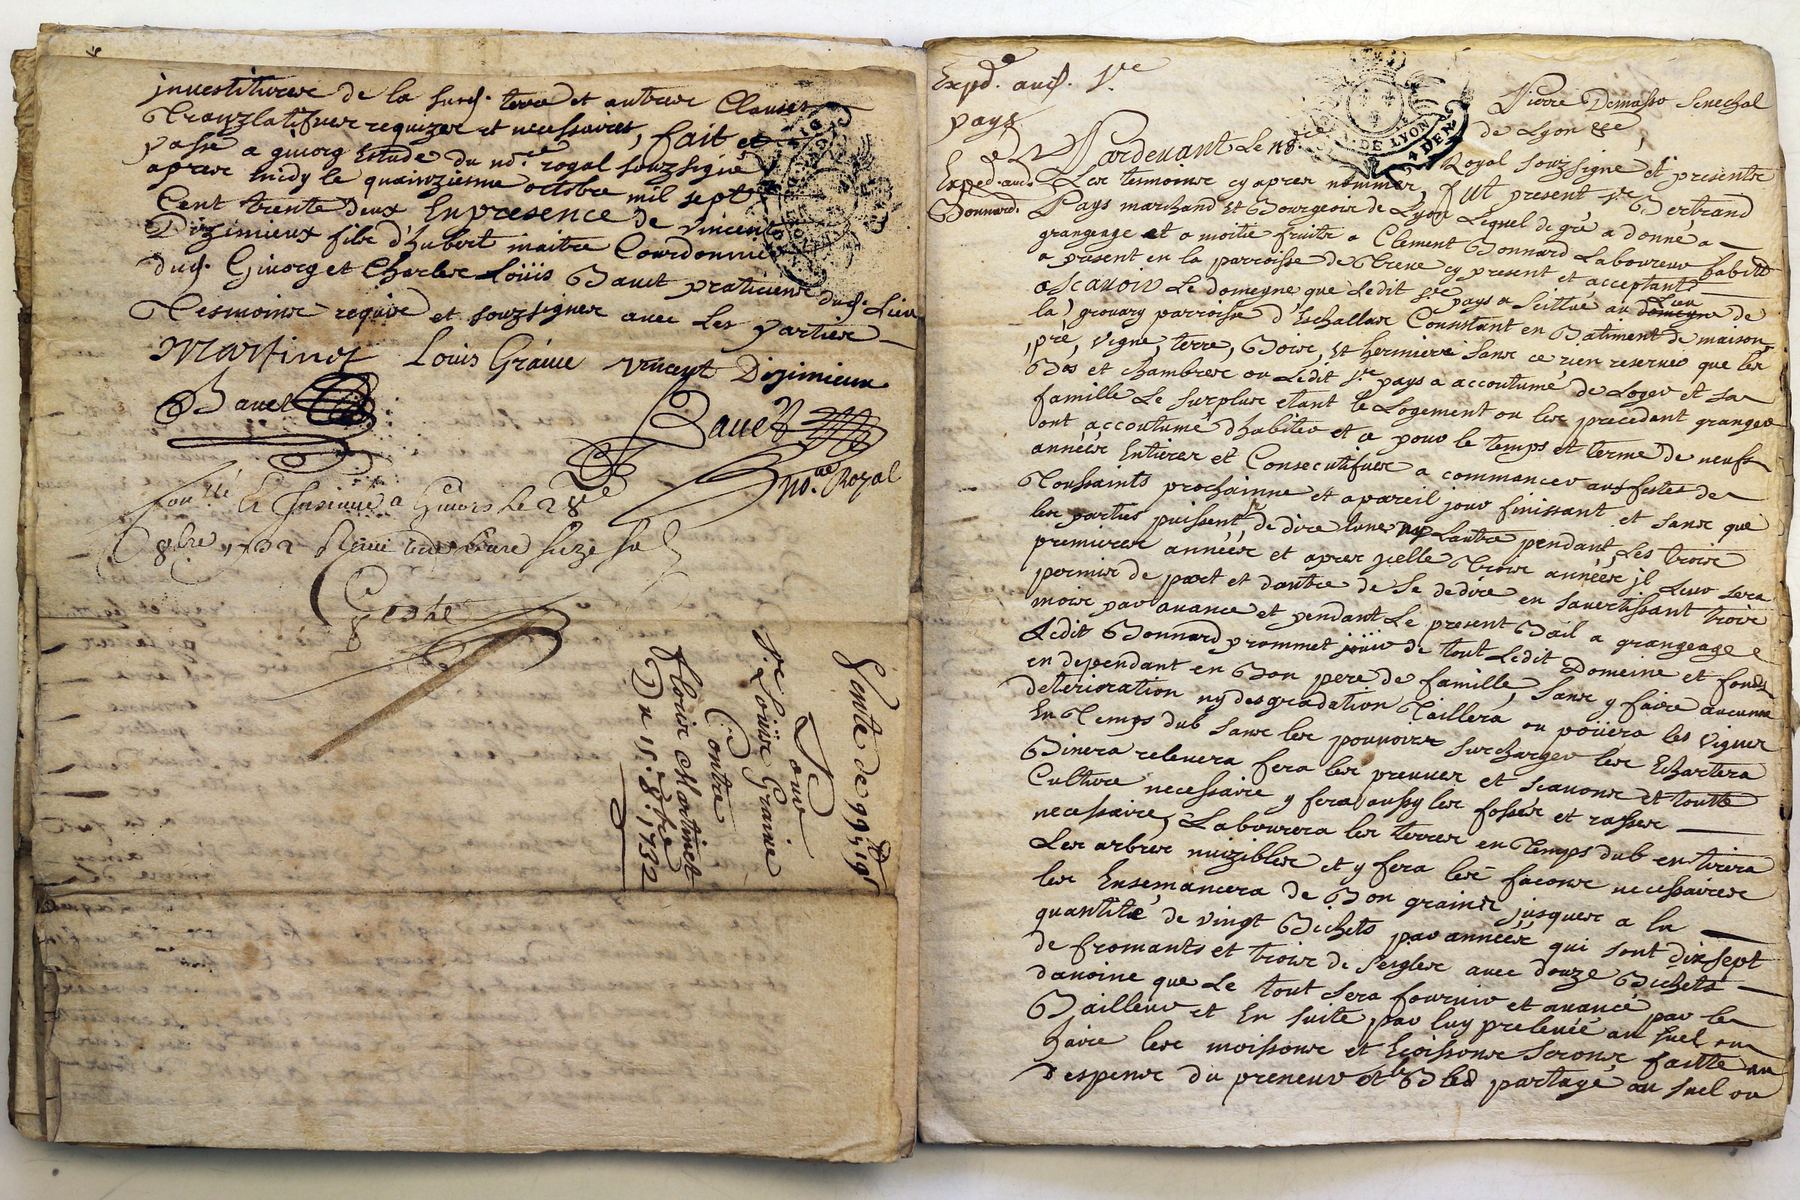 investitures de la susd. terre et autres Clauses
Translatifves requizes et necessaires, fait et
passé a givorg Estude du no.re royal souzsigné
apres midy le quainziesme octobre mil sept
Cent trente deux En presence de vincent
Dizimieux fils d'hubert maitre Courdonnier
dud. Givorg et Charles Loüis Bauet praticiens dud. Lieu
Tesmoins requis et souzsignes avec les parties
Martinet Louis Graiue vincent Dizimieux
Bauet
Bauet
No.re Royal
le 28e
8bre 1732
Vente de 99tt 19s
Pour
Sr. Loüise Graiue
Contre
Floris Martinet
Du 15. 8bre 1732
Exped. aud. Sr.
pays
Exped. aud.
Bonnard.
DE LYON
4 DEN
Pierre Demasso Senechal
de Lyon &c,
Pardevant Le no.re Royal souzsigne et presents
Les tesmoins cy apres nommes, fut present sr. Bertrand
Pays marchand et Bourgeois de Lyon Lequel de gré a donné a
grangeage et a moitié fruits a Clement Bonnard Laboureur habitt
a present en la parroisse de Treve cy present et acceptant
a scavoir Le domeyne que Ledit sr. pays a scittué au Lieu de
la grouary parroisse d'Eschallas Consistant en Batiment de maison,
pré, vigne, terre, Bois, et hermieres sans ce rien reserver que les
Bas et chambres ou Ledit sr. pays a accoutumé de Loger et sa
famille Le surplus etant le Logement ou les precedent granger
ont accoutumé d'habiter et a pour le temps et terme de neuf
années Entieres et Consecutifves a commencer aux festes de
Toussaints prochainne et a pareil jour finissant et sans que
les parties puissent de dire Lune ny Lautre pendant Les trois
premieres années et apres jcelle Trois années jl Leur sera
permis de part et dautre de se dedire en savertissant trois
mois par avance et pendant Le present Bail a grangeage
Ledit Bonnard prommet joüir de tout Ledit Domeine et fonds
en dependant en Bon pere de famille, sans y faire aucunne
deterioration ny desgradation Taillera ou poüera les vignes
En Temps dub sans les pouvoir surcharger les Echartera
Binera relevera fera les preuves et scavons et toutte
Culture necessaire y fera aussy les fossés et rasses
necessaire, Labourera les terres en Temps dub en tirera
Les arbres nuizibles et y fera les facons necessaires
les Ensemancera de Bon grains jusques a la
quantité de vingt Bichets par années qui sont dix sept
de fromants et trois de seigles avec douze Bichets
davoine que Le tout sera fournir et avancé par le
Bailleur et En suite par luy prelevé au suel ou
faire les moissons et Ecossons serons faitte au
despens du preneur et le Bled partagé au suel ou